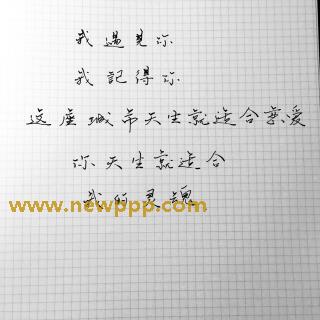 我遇見你
我記得你
这座城市天生就适合恋爱
你天生就适合
我的灵魂
www.newppp.com